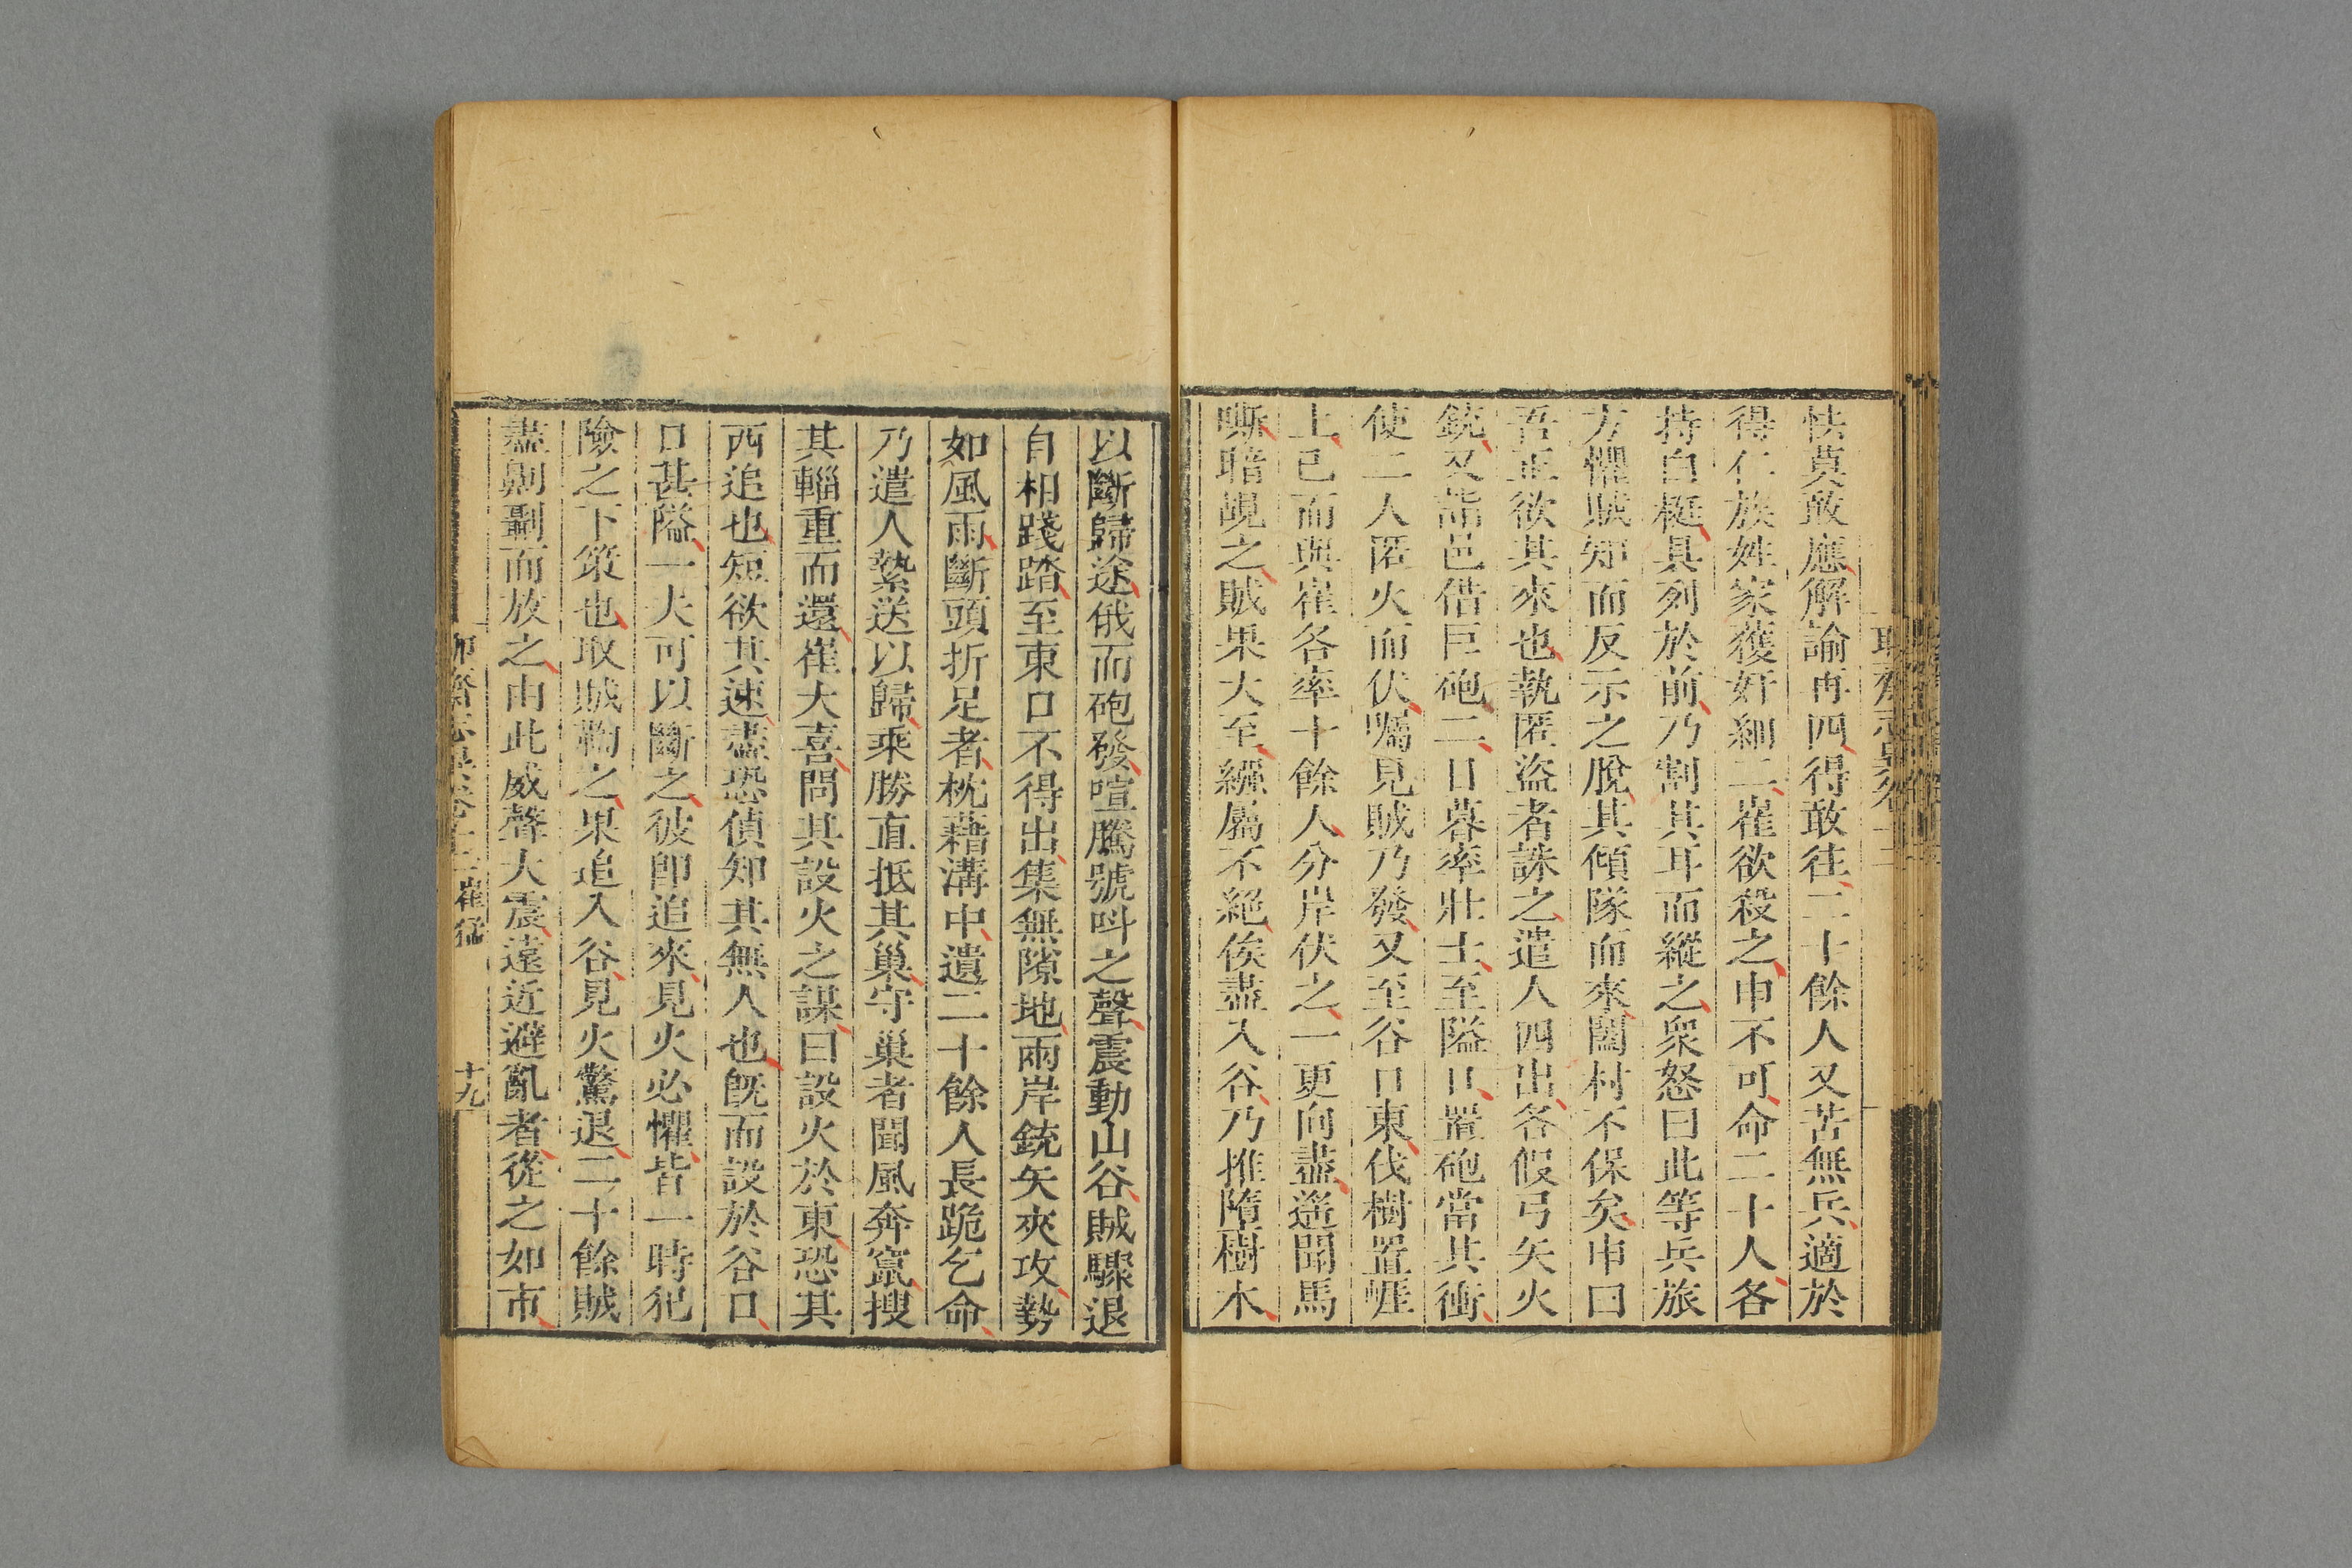 怯莫敢應解諭再四得敢往二十餘人又苦無兵適於
得仁族姓家獲奸細二崔欲殺之申不可命二十人各
持白梃具列於前乃割其耳而縱之衆怒曰此等兵旅
方懼賊知而反示之脫其傾隊而來闔村不保矣申曰
吾正欲其來也執匿盜者誅之遣人四出各假弓矢火
銃又詣邑借巨砲二日暮率壯士至隘口置砲當其衝
使二人匿火而伏囑見賊乃發又至谷口東伐樹置崖
上已而與崔各率十餘人分岸伏之一更向盡遙聞馬
嘶暗覘之賊果大至繦屬不絕俟盡入谷乃推隋樹木
以斷歸途俄而砲發喧騰號呌之聲震動山谷賊驟退
自相踐踏至東口不得出集無隙地兩岸銃矢夾攻勢
如風雨斷頭折足者枕藉溝中遺二十餘人長跪乞命
乃遣人縶送以歸乘勝直抵其巢守巢者聞風奔竄搜
其輜重而還崔大喜問其設火之謀曰設火於東恐其
西追也短欲其速盡恐偵知其無人也旣而設於谷口
口甚隘一夫可以斷之彼卽追來見火必懼皆一時犯
險之下策也取賊鞫之果追入谷見火驚退二十餘賊
盡劓刵而放之由此威聲大震遠近避亂者從之如市
聊齋志異卷十二 崔猛 十九